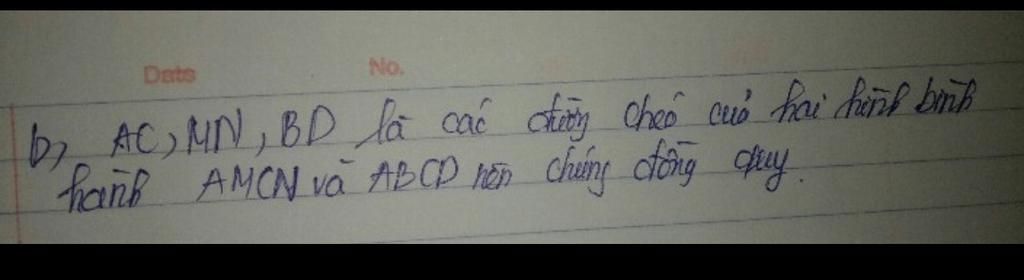 Date No.
b, AC, MN, BD là các đường chéo của hai hình bình
hành AMCN và ABCD nên chúng đồng quy.